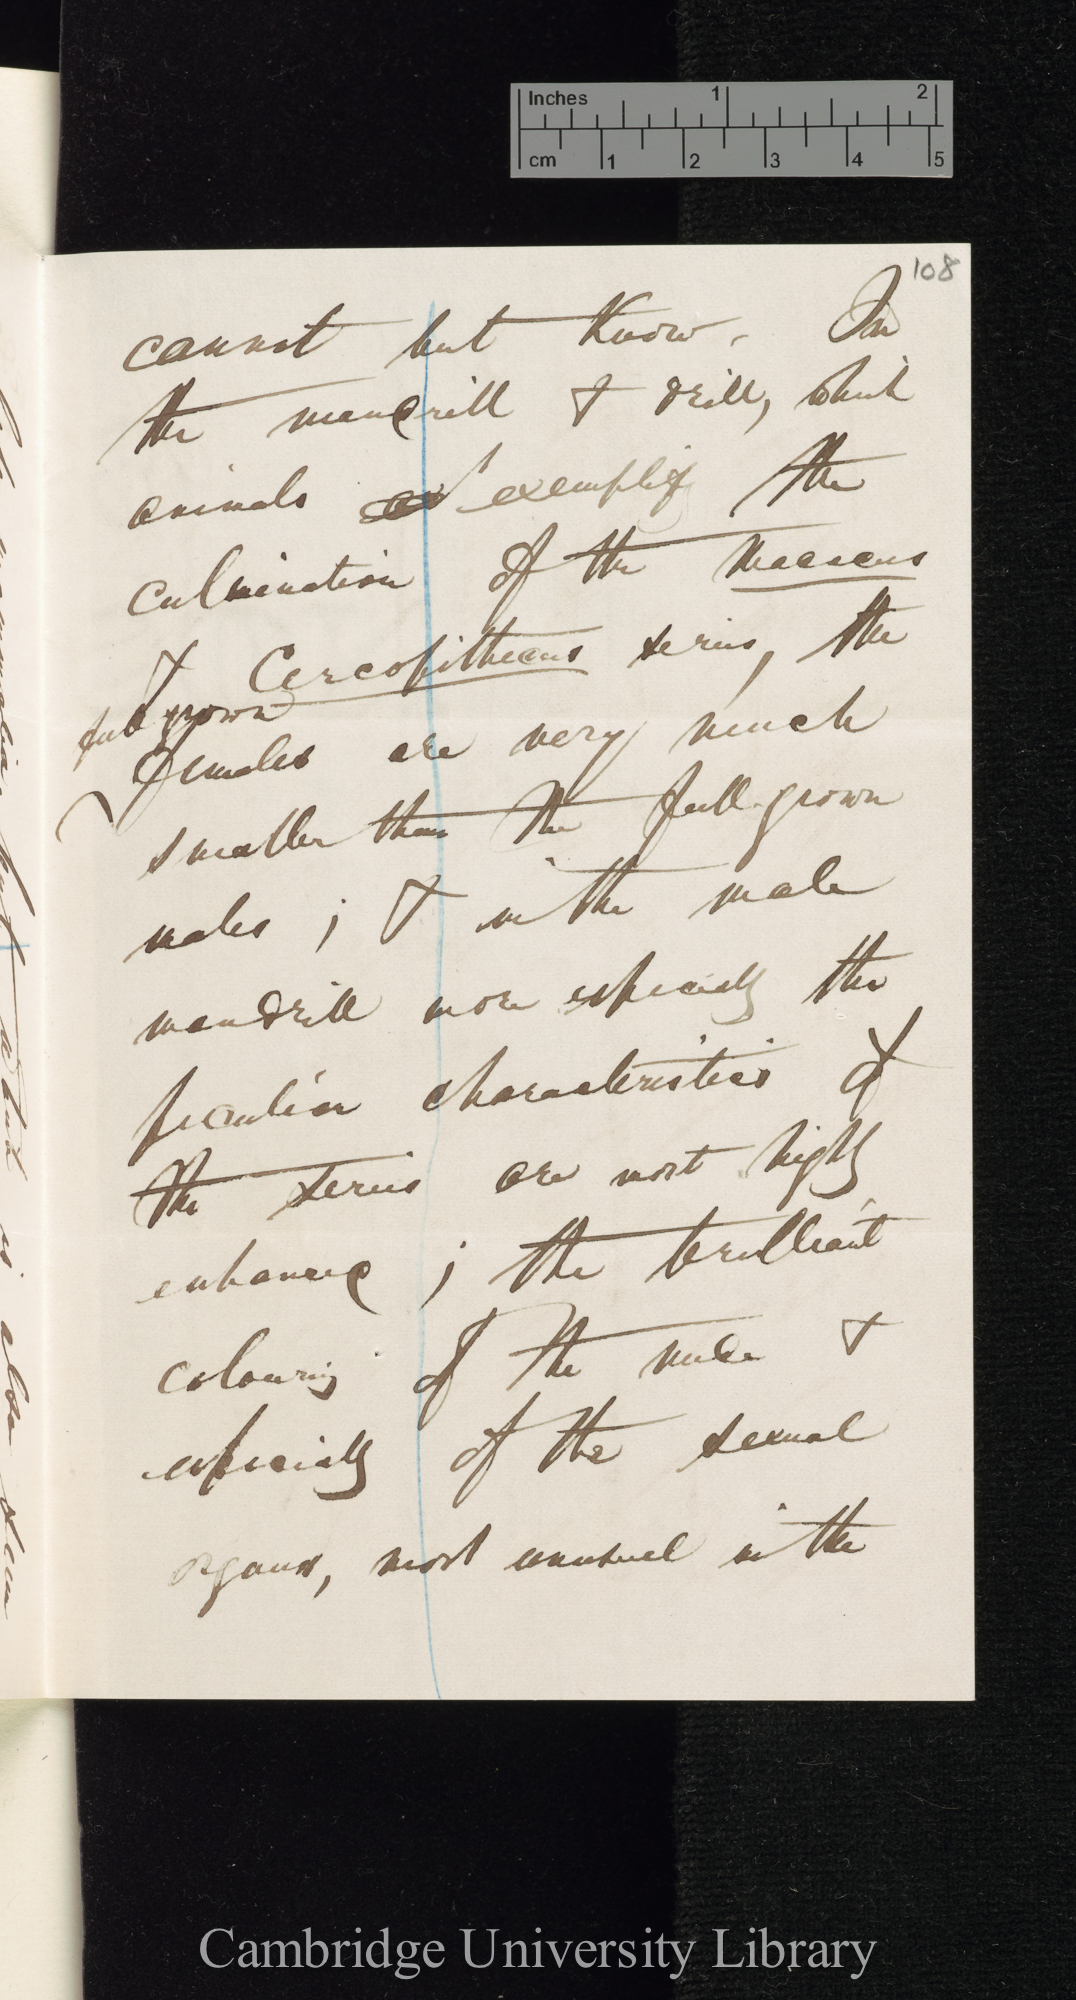 Inches 1 2
cm 1 2 3 4 5
108
cannot but know. In
the mandrill & drill, which
animals exemplify the
culmination of the Macacus
& Cercopithecus series, the
full grown
females are very much
smaller than the full-grown
males; & in the male
mandrill more especially the
peculiar characteristics of
the series are most highly
enhanced; the brilliant
colouring of the nude &
especially of the sexual
organs, most unusual in the
Cambridge University Library